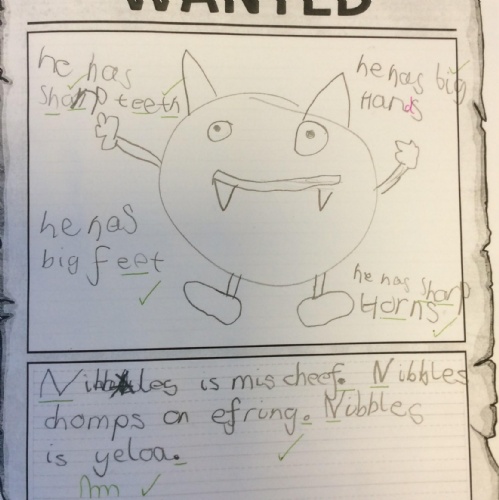 WANTED
he has
sharp teeth
he has big
Hands
he has
big feet
he has sharp
Horns
Nibbles is mischeef. Nibbles
chomps on efring. Nibbles
is yeloa.